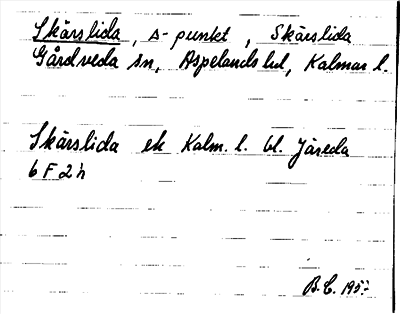 Skärslida, s-punkt, Skärslida
Gårdveda sn, Aspelands hd, Kalmar l.
Skärslida ek Kalm. l. bl. Järeda
6 F 2 h
B.C. 195